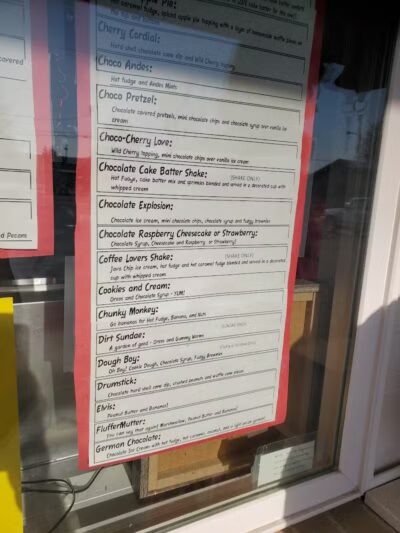 Pie:
Hot caramel fudge, spiced apple pie topping with a layer of homemade waffle pieces on
Cherry Cordial:
Hard shell chocolate cone dip and Wild Cherry topping
Choco Andes:
Hot fudge and Andes Mints
Choco Pretzel:
Chocolate covered pretzels, mini chocolate chips and chocolate syrup over vanilla ice
cream
Choco-Cherry Love:
Wild Cherry topping, mini chocolate chips over vanilla ice cream
Chocolate Cake Batter Shake: (SHAKE ONLY)
Hot Fudge, cake batter mix and sprinkles blended and served in a decorated cup with
whipped cream
Chocolate Explosion:
Chocolate ice cream, mini chocolate chips, chocolate syrup and fudgy brownies
Chocolate Raspberry Cheesecake or Strawberry:
Chocolate Syrup, Cheesecake and Raspberry or Strawberry!
Coffee Lovers Shake: (SHAKE ONLY)
Java Chip ice cream, hot fudge and hot caramel fudge blended and served in a decorated
cup with whipped cream
Cookies and Cream:
Oreos and Chocolate Syrup - YUM!
Chunky Monkey:
Go bananas for Hot Fudge, Banana, and Nuts
Dirt Sundae:
A garden of good - Oreos and Gummy Worms
Dough Boy:
Oh Boy! Cookie Dough, Chocolate Syrup, Fudgy Brownies
Drumstick:
Chocolate hard shell dip, crushed peanuts and waffle cone pieces
Elvis:
Peanut Butter and Bananas!
FlufferMutter:
You can say that again! Marshmallow, Peanut Butter and Bananas!
German Chocolate:
Chocolate Ice Cream with hot fudge, hot caramel, coconut, and
covered
d Pecans